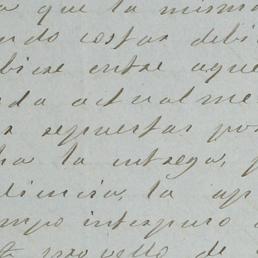 que la misma
ndo costas debi
biese entre aque
da actualme
s repuestas po
ha la entrega,
liencia, la ap
mpo interpuso